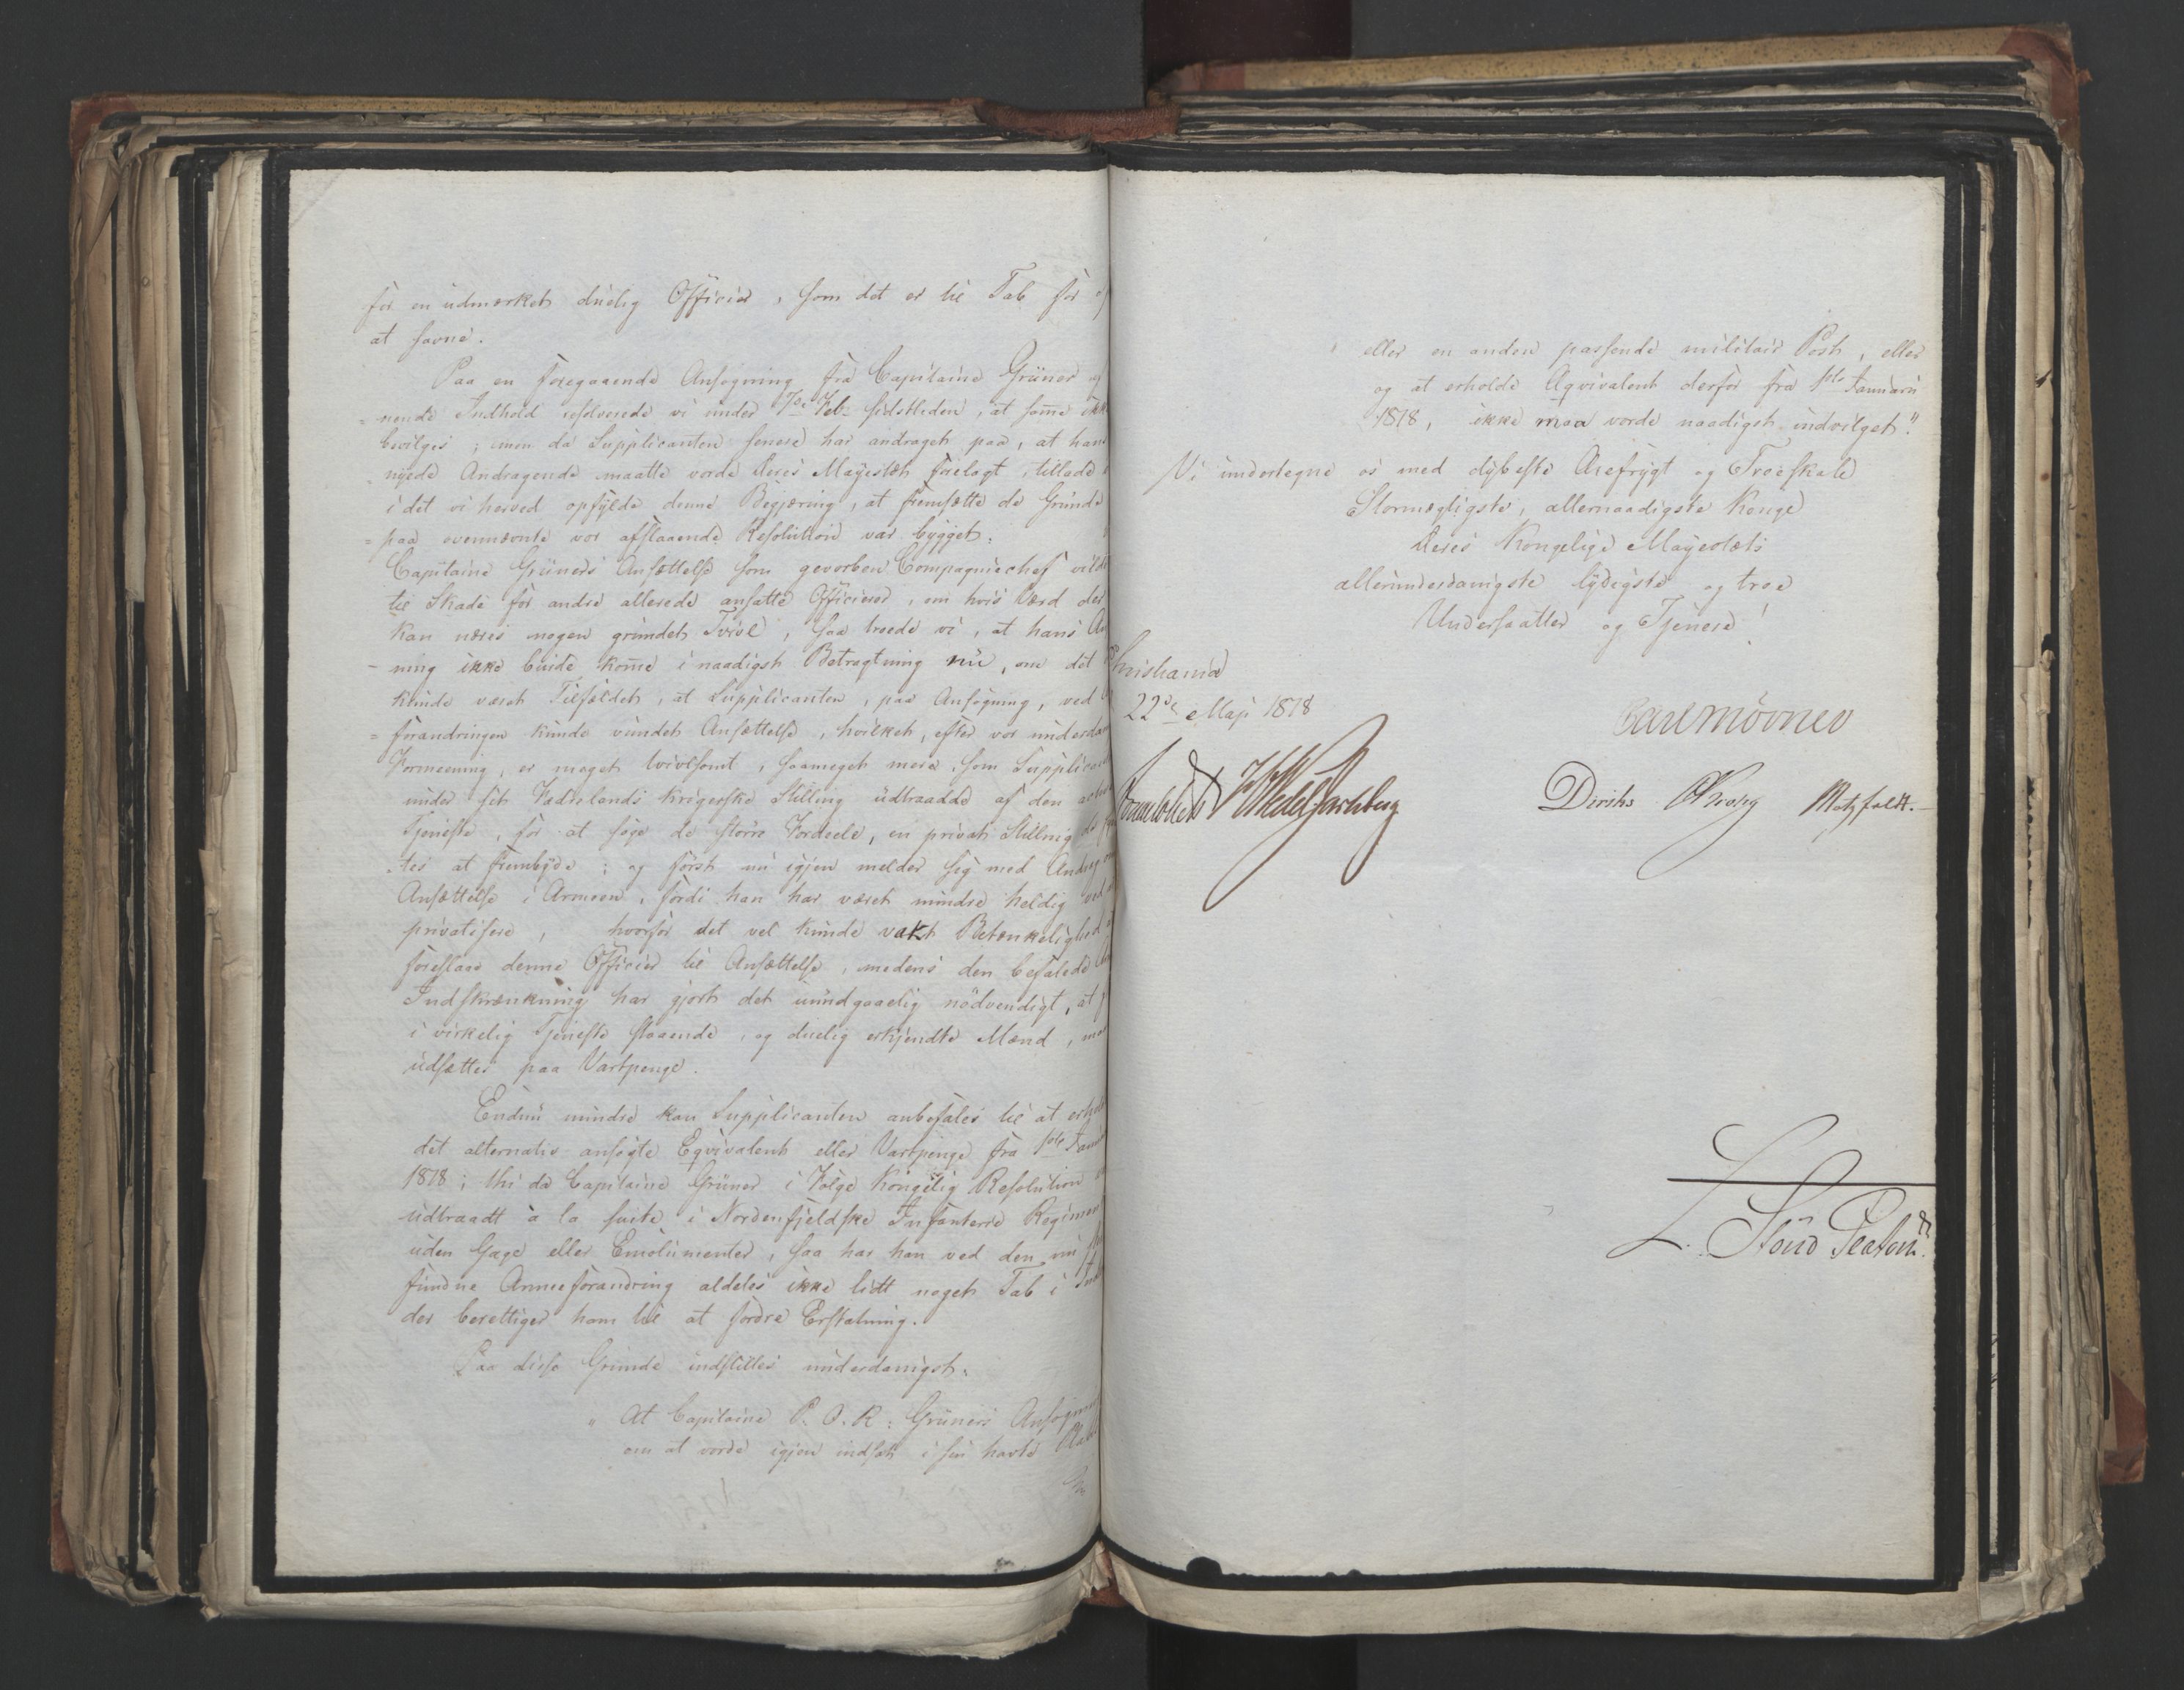 for en udmærket duelig Officier, som det er til Tab for
at savne.
Paa en foregaaende Ansøgning fra Capitaine Grüner
nende Indhold resolverede vi under 7de Feb: sidstleden, at samme ikke
bevilges; men da Supplicanten senere har andraget paa, at hans
nyede Andragende maatte vorde Deres Mayestæt forelagt, tillade
i det vi herved opfylde denne Begjæring, at fremsætte de Grunde
=paa ovennævnte vor afslaaende Resolution var bygget:
Capitaine Grüners Ansættelse som gevorben Compagniechef vilde
til Skade for andre allerede ansatte Officierer, om hvis Værd der
kan næres nogen grundet Tvivl, saa troede vi, at hans
-ning ikke burde komme i naadigst Betragtning nu, om det
kunde været Tilfældet, at Supplicanten, paa Ansøgning, ved
=forandringen kunde vundet Ansættelse, hvilket, efter vor underda
Formeening, er meget tvivlsomt, saameget mere, som Supplican
under sit Fædrelands krigerske Stilling udtraadde af den
Tjeneste, for at søge de større Fordeele, en privat Stilling
-tes at frembyde; og først nu igjen melder sig med
Ansættelse i Armeen, fordi han har været mindre heldig ved
privatisere, hvorfor det vel kunde vakt Betænkelighed
foreslaae denne Officier til Ansættelse, medens den befalede
Indskrænkning har gjort det uundgaaelig nødvendigt, at
i virkelig Tjeneste staaende, og duelig erkjendte Mænd,
udsættes paa Vartpenge.
Endnu mindre kan Supplicanten anbefales til at
det alternativ ansøgte Eqvivalent eller Vartpenge fra 1ste
1818; thi da Capitaine Grüner i Følge Kongelig Resolution
udtraadt à la suite i Nordenfjeldske Infanterie Regiment
uden Gage eller Emolumenter, saa har han ved den nu
fundne Armeeforandring aldeles ikke lidt noget Tab i
der berettiger ham til at fordre Erstatning.
Paa disse Grunde indstilles underdanigst:
"At Capitaine P. O. R: Grüners
om at vorde igjen indsat i sin havte
eller en anden passende militair Post, eller
og at erholde Æqvivalent derfor fra 1ste Januari
1818, ikke maa vorde naadigst indvilget."
Vi undertegne os med dybeste Ærefrygt og Troeskab
Stormægtigste, allernaadigste Konge
Deres Kongelige Mayestæts
allerunderdanigste lydigste og troe
Undersaatter og Tjenere!
Christiania
22de Maji 1818
Carl Mörner
Wedel Jarlsberg Diriks Krohg Motzfeldt.
L. Stoud Platou